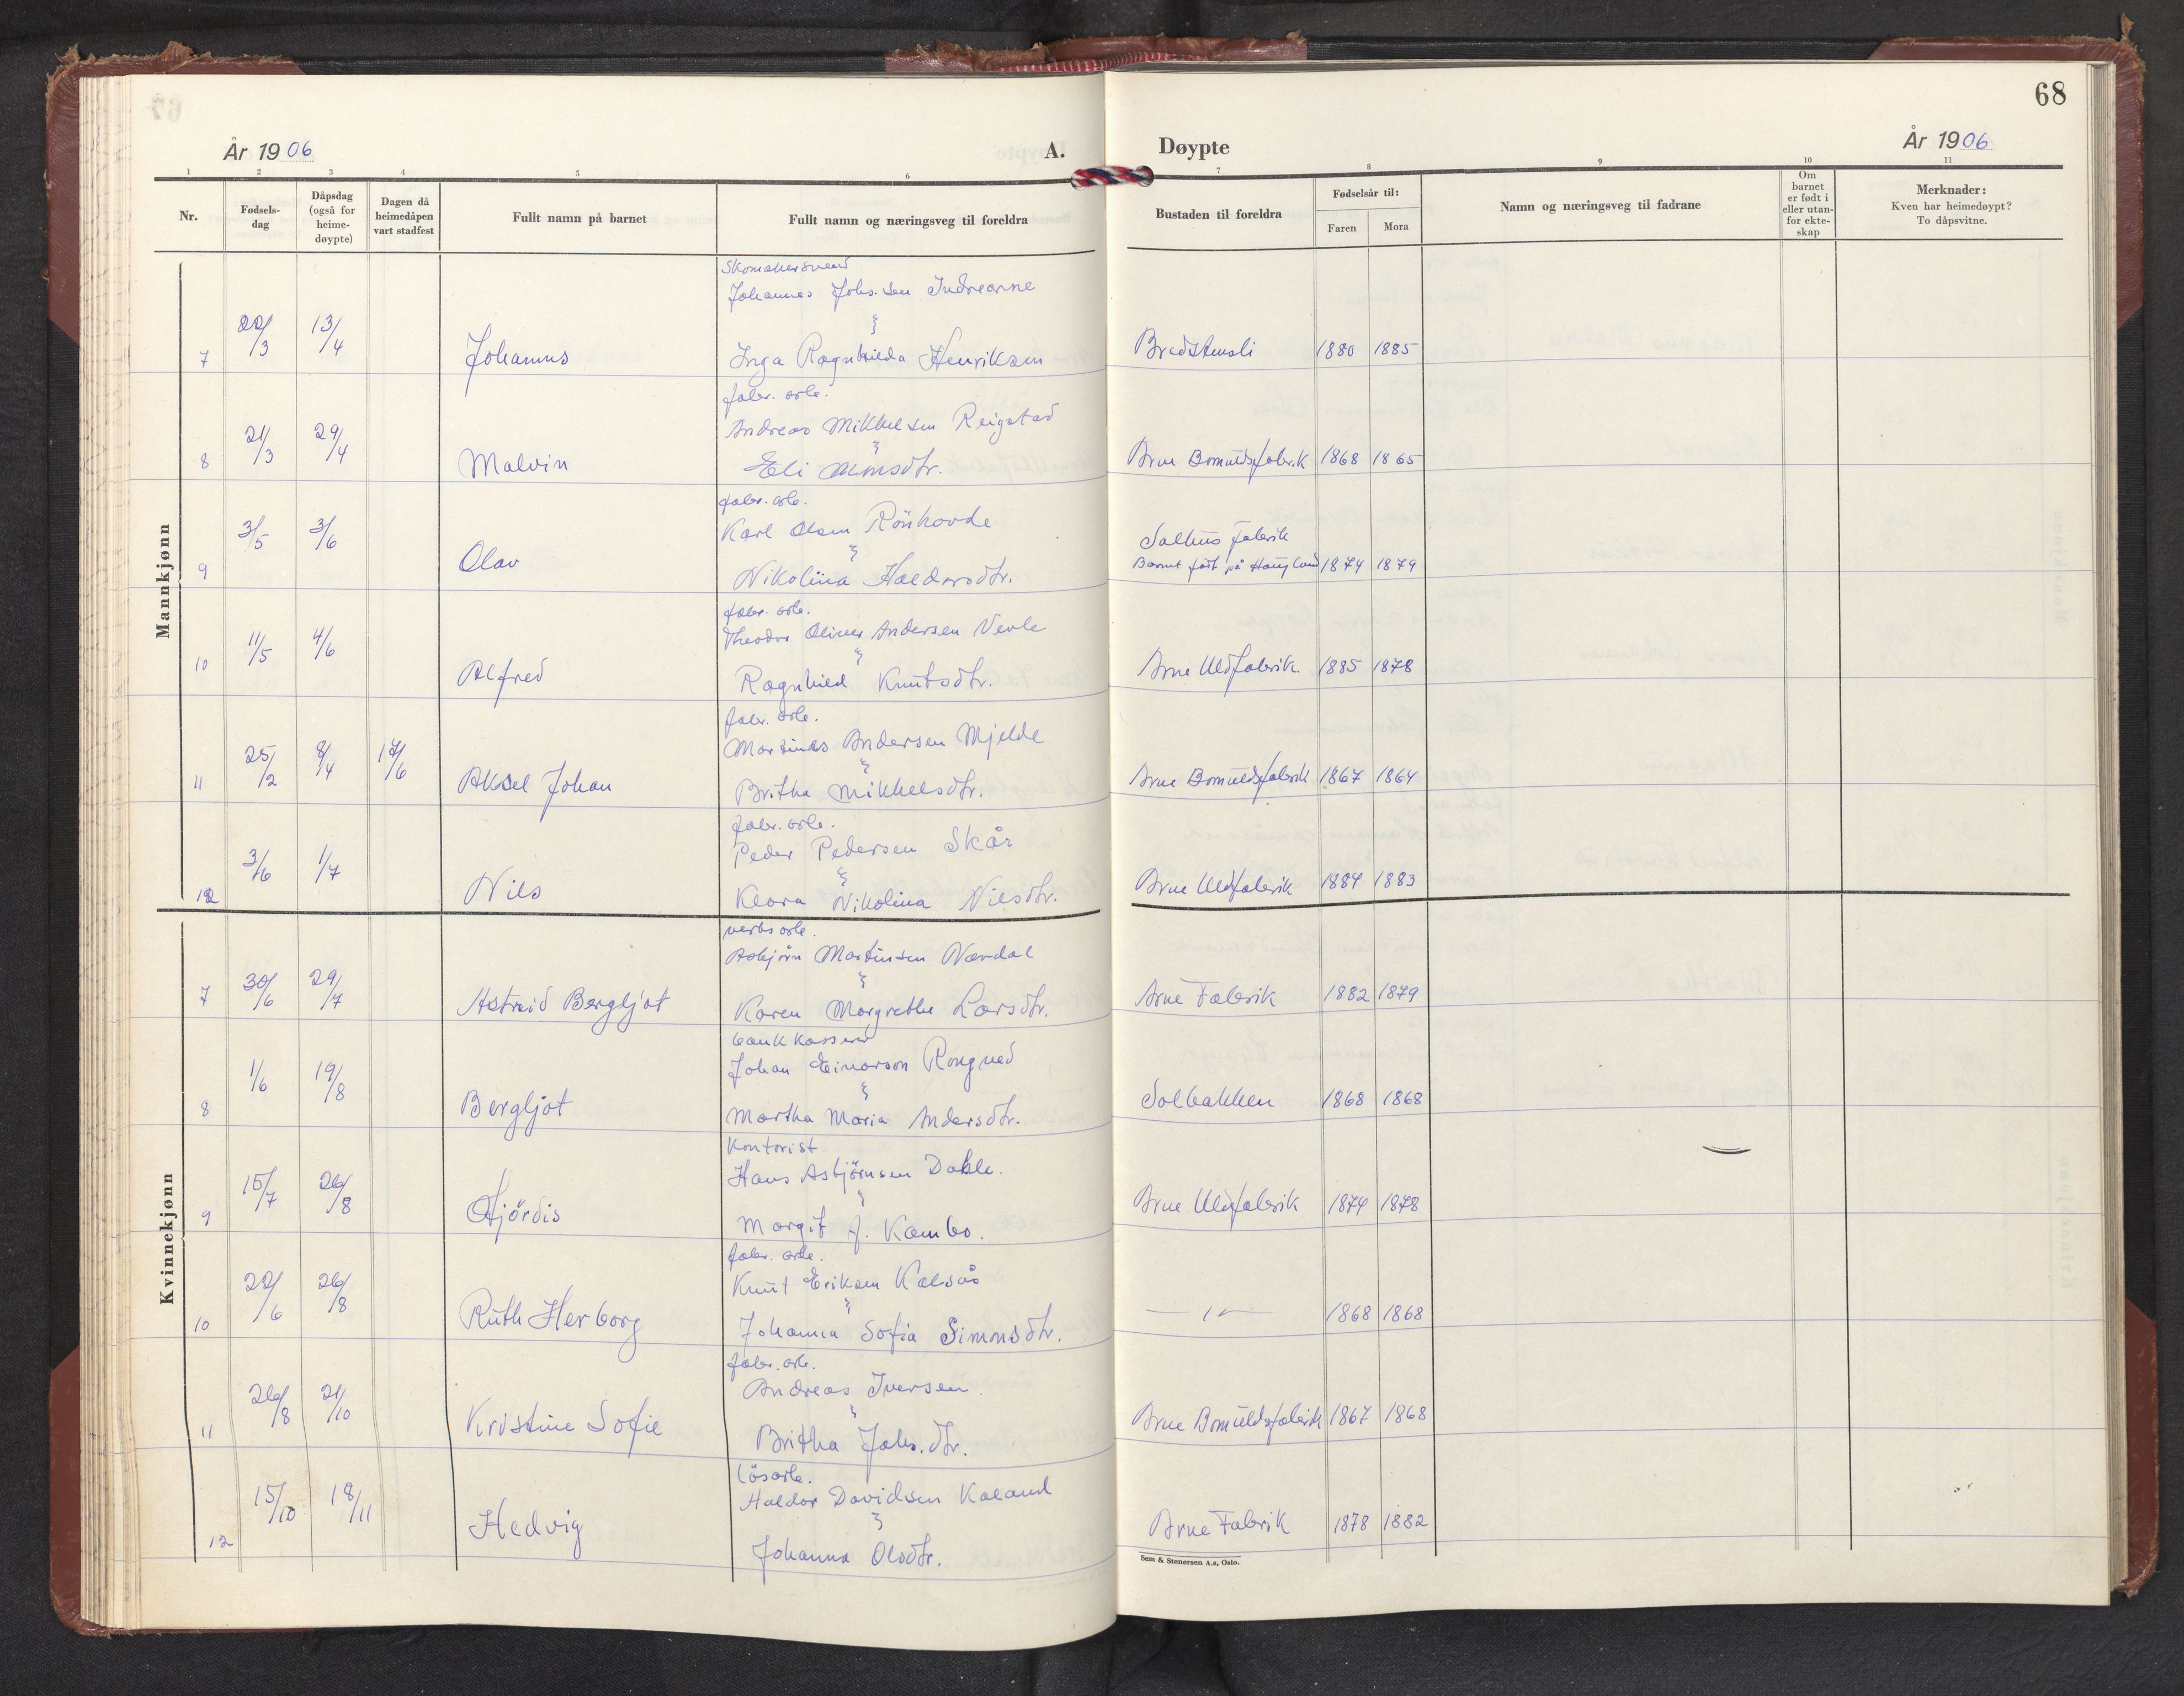 68
År 1906
A. Døypte
År 1906
1 2 3 4 5 6 7 8 9 10 11
Nr.
Fødsels-
dag
Dåpsdag
(også for
heime-
døypte)
Dagen då
heimedåpen
vart stadfest
Fullt namn på barnet
Fullt namn og næringsveg til foreldra
Bustaden til foreldra
Fødselsår til:
Faren Mora
Namn og næringsveg til fadrane
Om
barnet
er født i
eller utan-
for ekte-
skap
Merknader:
Kven har heimedøypt?
To dåpsvitne.
Mannkjønn
Skomakersvend
Johannes Johs.sen Indrearne
7 22/3 13/4 Johannes Inga Ragnhilda Henriksen Bredstensli 1880 1885
fabr. arb.
Andreas Mikkelsen Reigstad
8 21/3 29/4 Malvin Eli Monsdtr. Arne Bomuldsfabrik 1868 1865
fabr. arb.
Karl Olsen Rönhovde
Salhus Fabrik
9 3/5 3/6 Olav Nikolina Haldorsdtr. Barnet født på Haugland 1874 1879
fabr. arb.
Theodor Oliver Andersen Nevle
10 11/5 4/6 Alfred Ragnhild Knutsdtr. Arne Uldfabrik. 1885 1878
fabr. arb.
Martinus Andersen Mjelde
11 25/2 8/4 17/6 Aksel Johan Britha Mikkelsdtr. Arne Bomuldsfabrik 1867 1864
fabr. arb.
Peder Pedersen Skår
12 3/6 1/7 Nils Klara Nikolina Nilsdtr. Arne Uldfabrik 1884 1883
Kvinnekjønn
verks arb.
Asbjörn Martinsen Navdal
7 30/6 29/7 Astrid Bergljot Karen Margrethe Larsdtr. Arne Fabrik 1882 1879
bankkasserer
Johan Einarson Rongved
8 1/6 19/8 Bergljot Martha Maria Andersdtr. Solbakken 1868 1868
Kontorist
Hans Asbjörnsen Dahle.
9 15/7 26/8 Hjördis Margit J. Kambo. Arne Uldfabrik 1874 1878
fabr. arb.
Knut Eriksen Kalsås
10 22/6 26/8 Ruth Herborg Johanna Sofia Simonsdtr. — " — 1868 1868
fabr. arb.
Andreas Iversen
11 26/8 21/10 Kristine Sofie Britha Johs.dtr. Arne Bomuldsfabrik 1867 1868
lösarb.
Haldor Davidsen Kaland
12 15/10 18/11 Hedvig Johanna Olsdtr. Arne Fabrik 1878 1882
Sem & Stenersen A.s, Oslo.